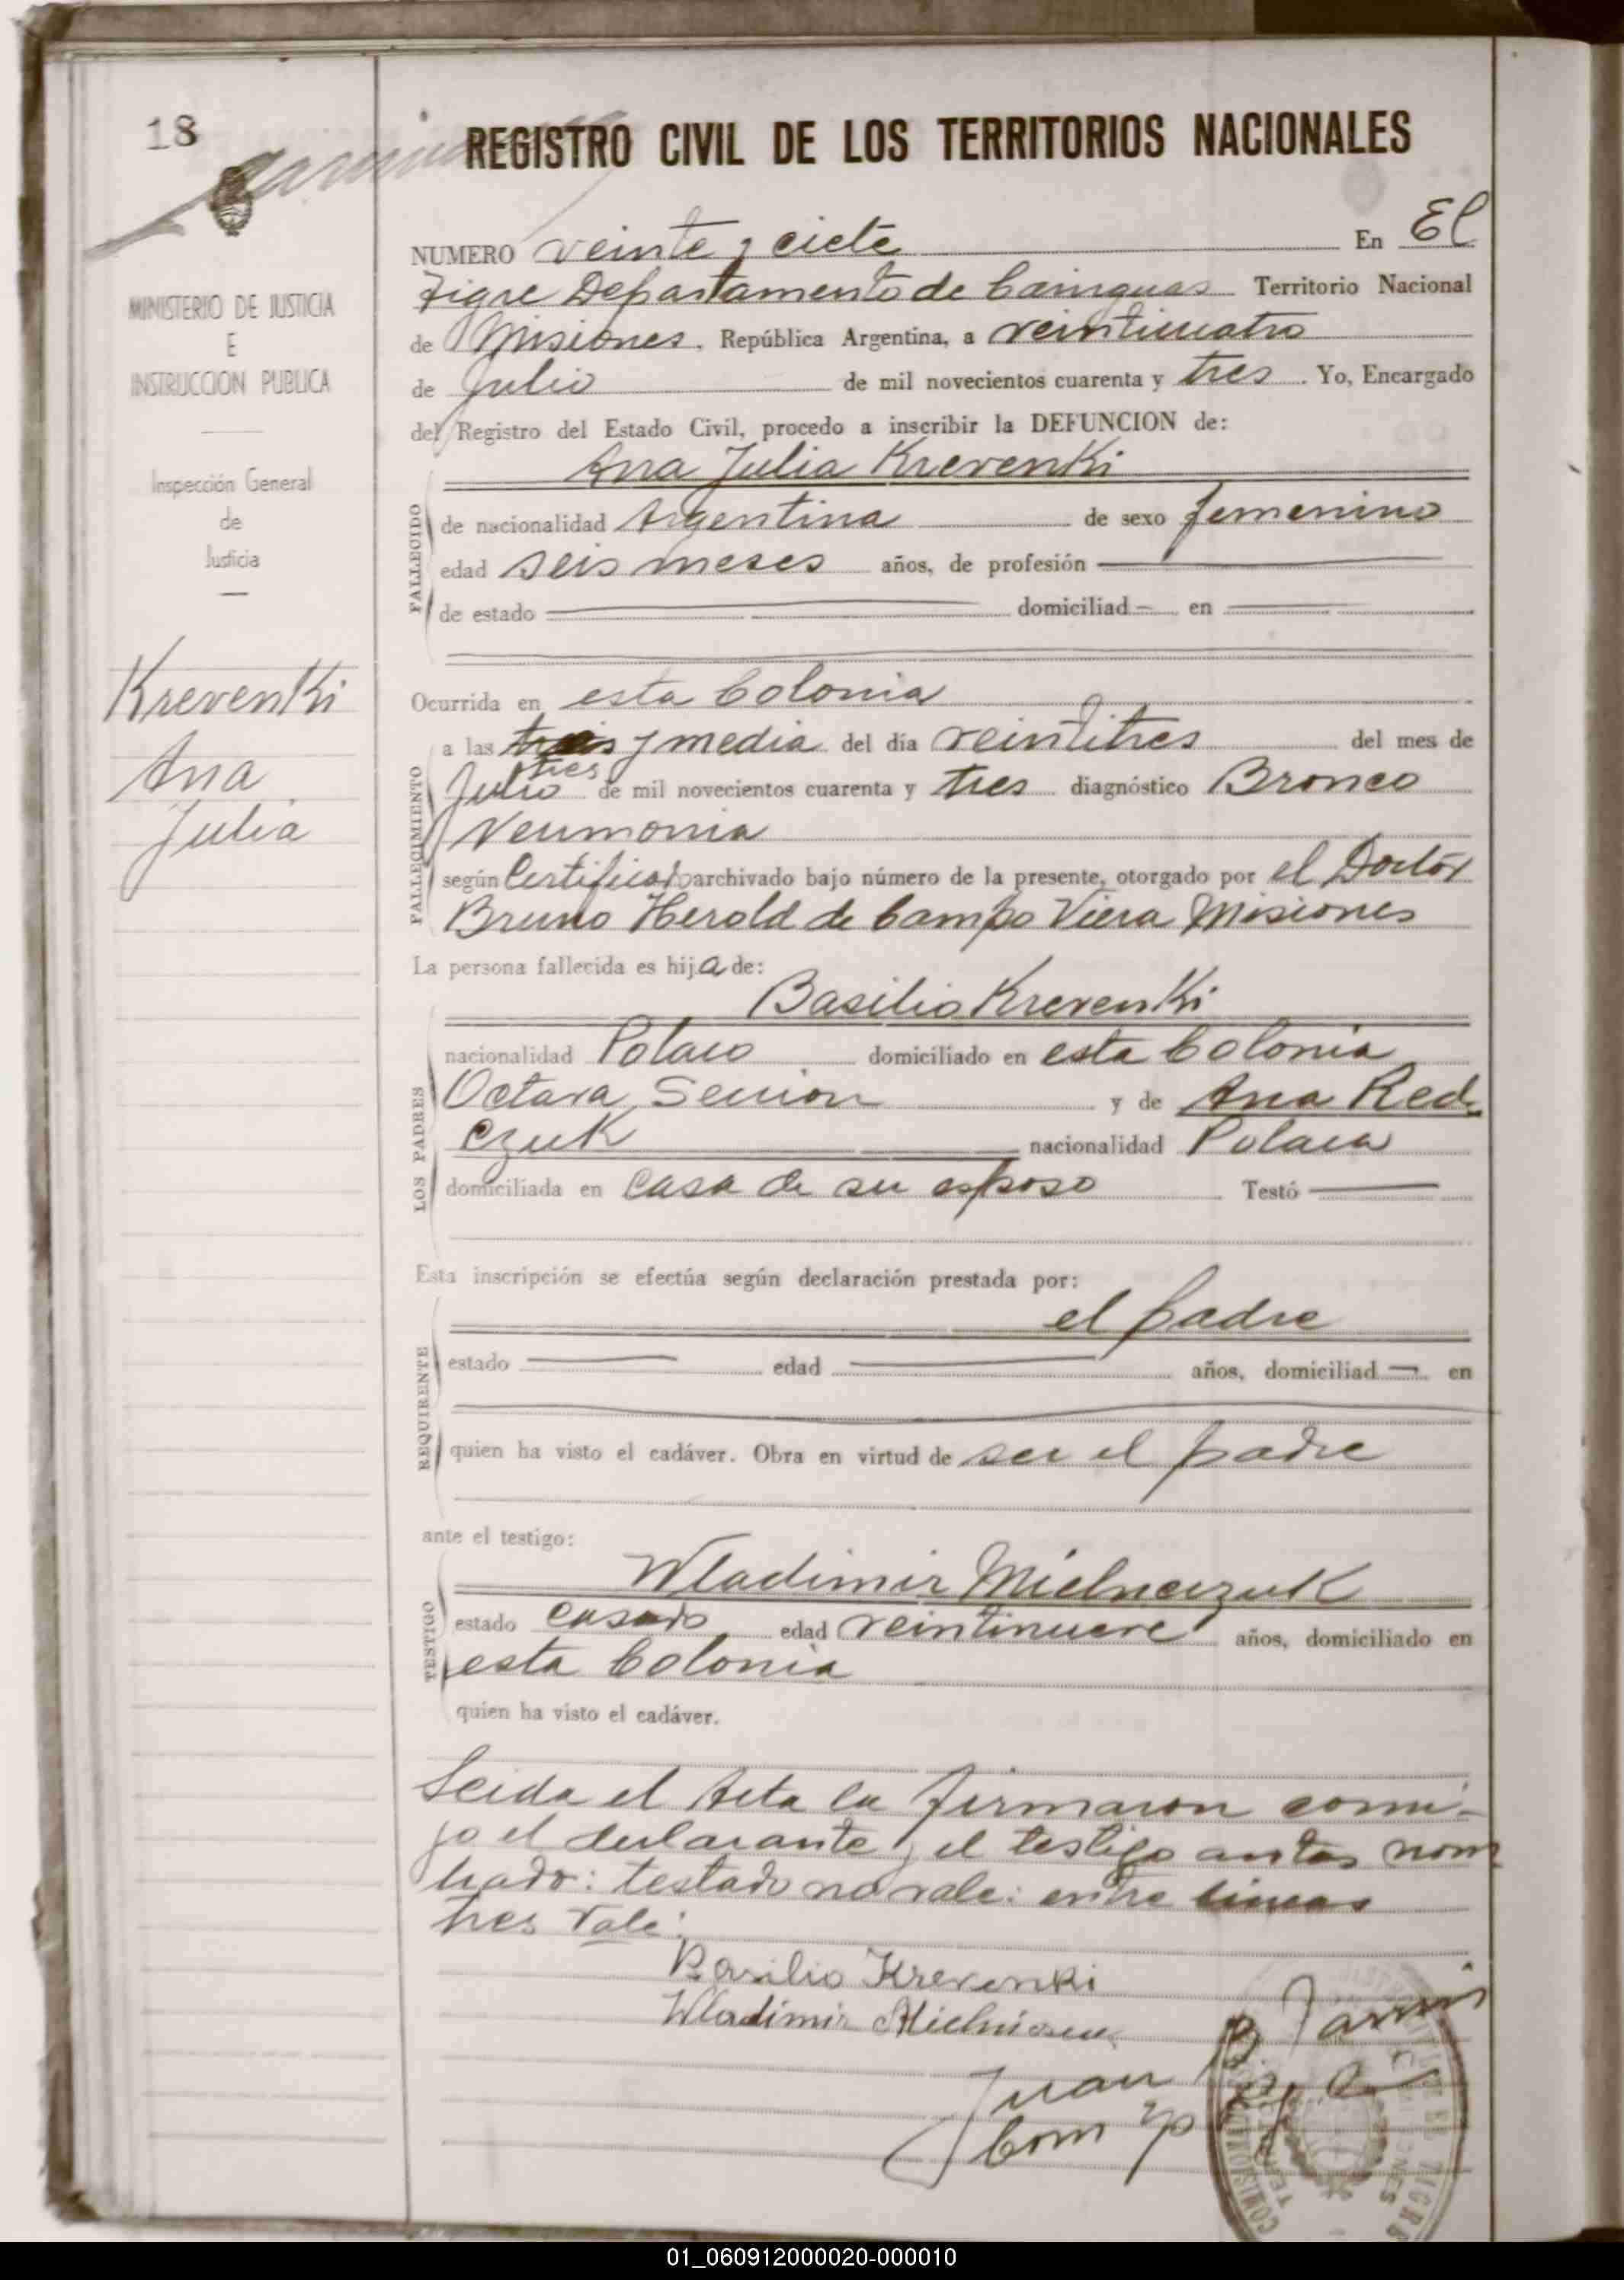 18
REGISTRO CIVIL DE LOS TERRITORIOS NACIONALES
NUMERO veinte y ciete En El
Tigre Departamento de Cainguas Territorio Nacional
de Misiones, República Argentina, a veinticuatro
de Julio de mil novecientos cuarenta y tres. Yo, Encargado
del Registro del Estado Civil, procedo a inscribir la DEFUNCION de:
Ana Julia Krevenki
FALLECIDO
de nacionalidad Argentina de sexo femenino
edad seis meses años, de profesión
de estado domiciliad en
MINISTERIO DE JUSTICIA
E
INSTRUCCION PUBLICA
Inspección General
de
Justicia
Krevenki
Ana
Julia
Ocurrida en esta Colonia
FALLECIMIENTO
a las y media del día veintitres del mes de
tres
Julio de mil novecientos cuarenta y tres diagnóstico Bronco
Neumonia
según Certificado archivado bajo número de la presente, otorgado por el Doctor
Bruno Herold de Campo Viera Misiones
La persona fallecida es hija de:
Basilio Krevenki
LOS PADRES
nacionalidad Polaco domiciliado en esta Colonia
Octava Seccion y de Ana Red-
czuk nacionalidad Polaca
domiciliada en casa de su esposo Testó
Esta inscripción se efectúa según declaración prestada por:
el padre
REQUIRENTE
estado edad años, domiciliad en
quien ha visto el cadáver. Obra en virtud de ser el padre
ante el testigo:
Wladimir Mielneczuk
TESTIGO
estado casado edad veintinueve años, domiciliado en
esta Colonia
quien ha visto el cadáver.
Leida el Acta la firmaron conmi-
go el declarante y el testigo antes nom
brado: testado no vale: entre lineas
tres Vale:
Basilio Krevenki
Wladimir
Juan B
01_060912000020-000010